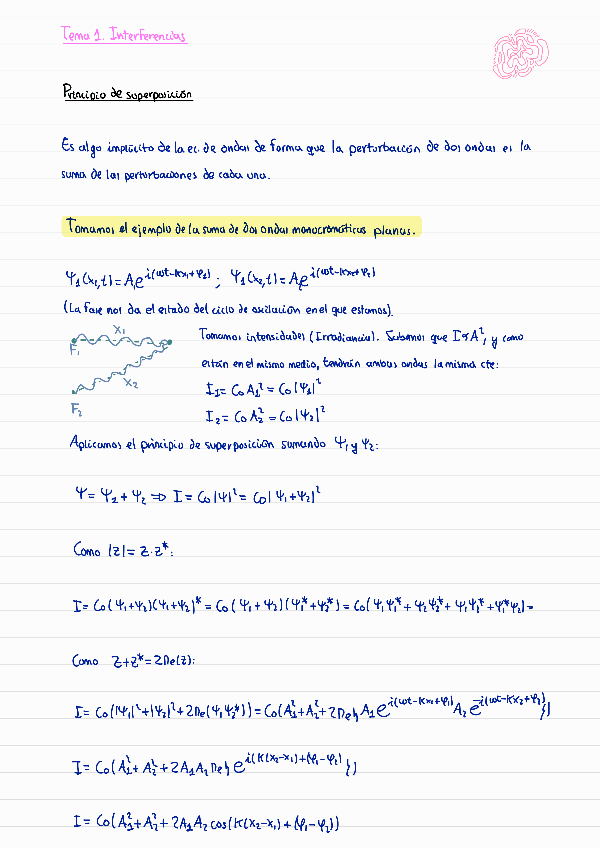 Tema 1. Interferencias
Principio de superposición
Es algo implícito de la ec. de ondas de forma que la perturbación de dos ondas es la
suma de las perturbaciones de cada una.
Tomamos el ejemplo de la suma de dos ondas monocromáticas planas.
Ψ₁(x₁,t)=A₁e^i(ωt-kx₁+φ₁) ; Ψ₁(x₂,t)=A₂e^i(ωt-kx₂+φ₂)
(La fase nos da el estado del ciclo de oscilación en el que estamos).
x₁
F₁
P
x₂
F₂
Tomamos intensidades (Irradiancia). Sabemos que I∝A², y como
están en el mismo medio, tendrán ambas ondas la misma cte:
I₁= C₀A₁² = C₀|Ψ₁|²
I₂= C₀A₂² = C₀|Ψ₂|²
Aplicamos el principio de superposición sumando Ψ₁ y Ψ₂:
Ψ= Ψ₂+Ψ₂ ⇒ I= C₀|Ψ|² = C₀|Ψ₁+Ψ₂|²
Como |z|= z·z*:
I= C₀(Ψ₁+Ψ₂)(Ψ₁+Ψ₂)* = C₀(Ψ₁+Ψ₂)(Ψ₁*+Ψ₂*) = C₀(Ψ₁Ψ₁*+Ψ₂Ψ₂*+Ψ₁Ψ₂*+Ψ₁*Ψ₂)=
Como z+z*=2Re(z):
I= C₀(|Ψ₁|²+|Ψ₂|²+2Re(Ψ₁Ψ₂*))=C₀(A₁²+A₂²+2Re{A₁e^i(ωt-kx₁+φ₁) A₂e^-i(ωt-kx₂+φ₂)})
I= C₀(A₁²+A₂²+2A₁A₂Re{e^i(k(x₂-x₁)+(φ₁-φ₂))})
I= C₀(A₁²+A₂²+2A₁A₂cos(k(x₂-x₁)+(φ₁-φ₂))